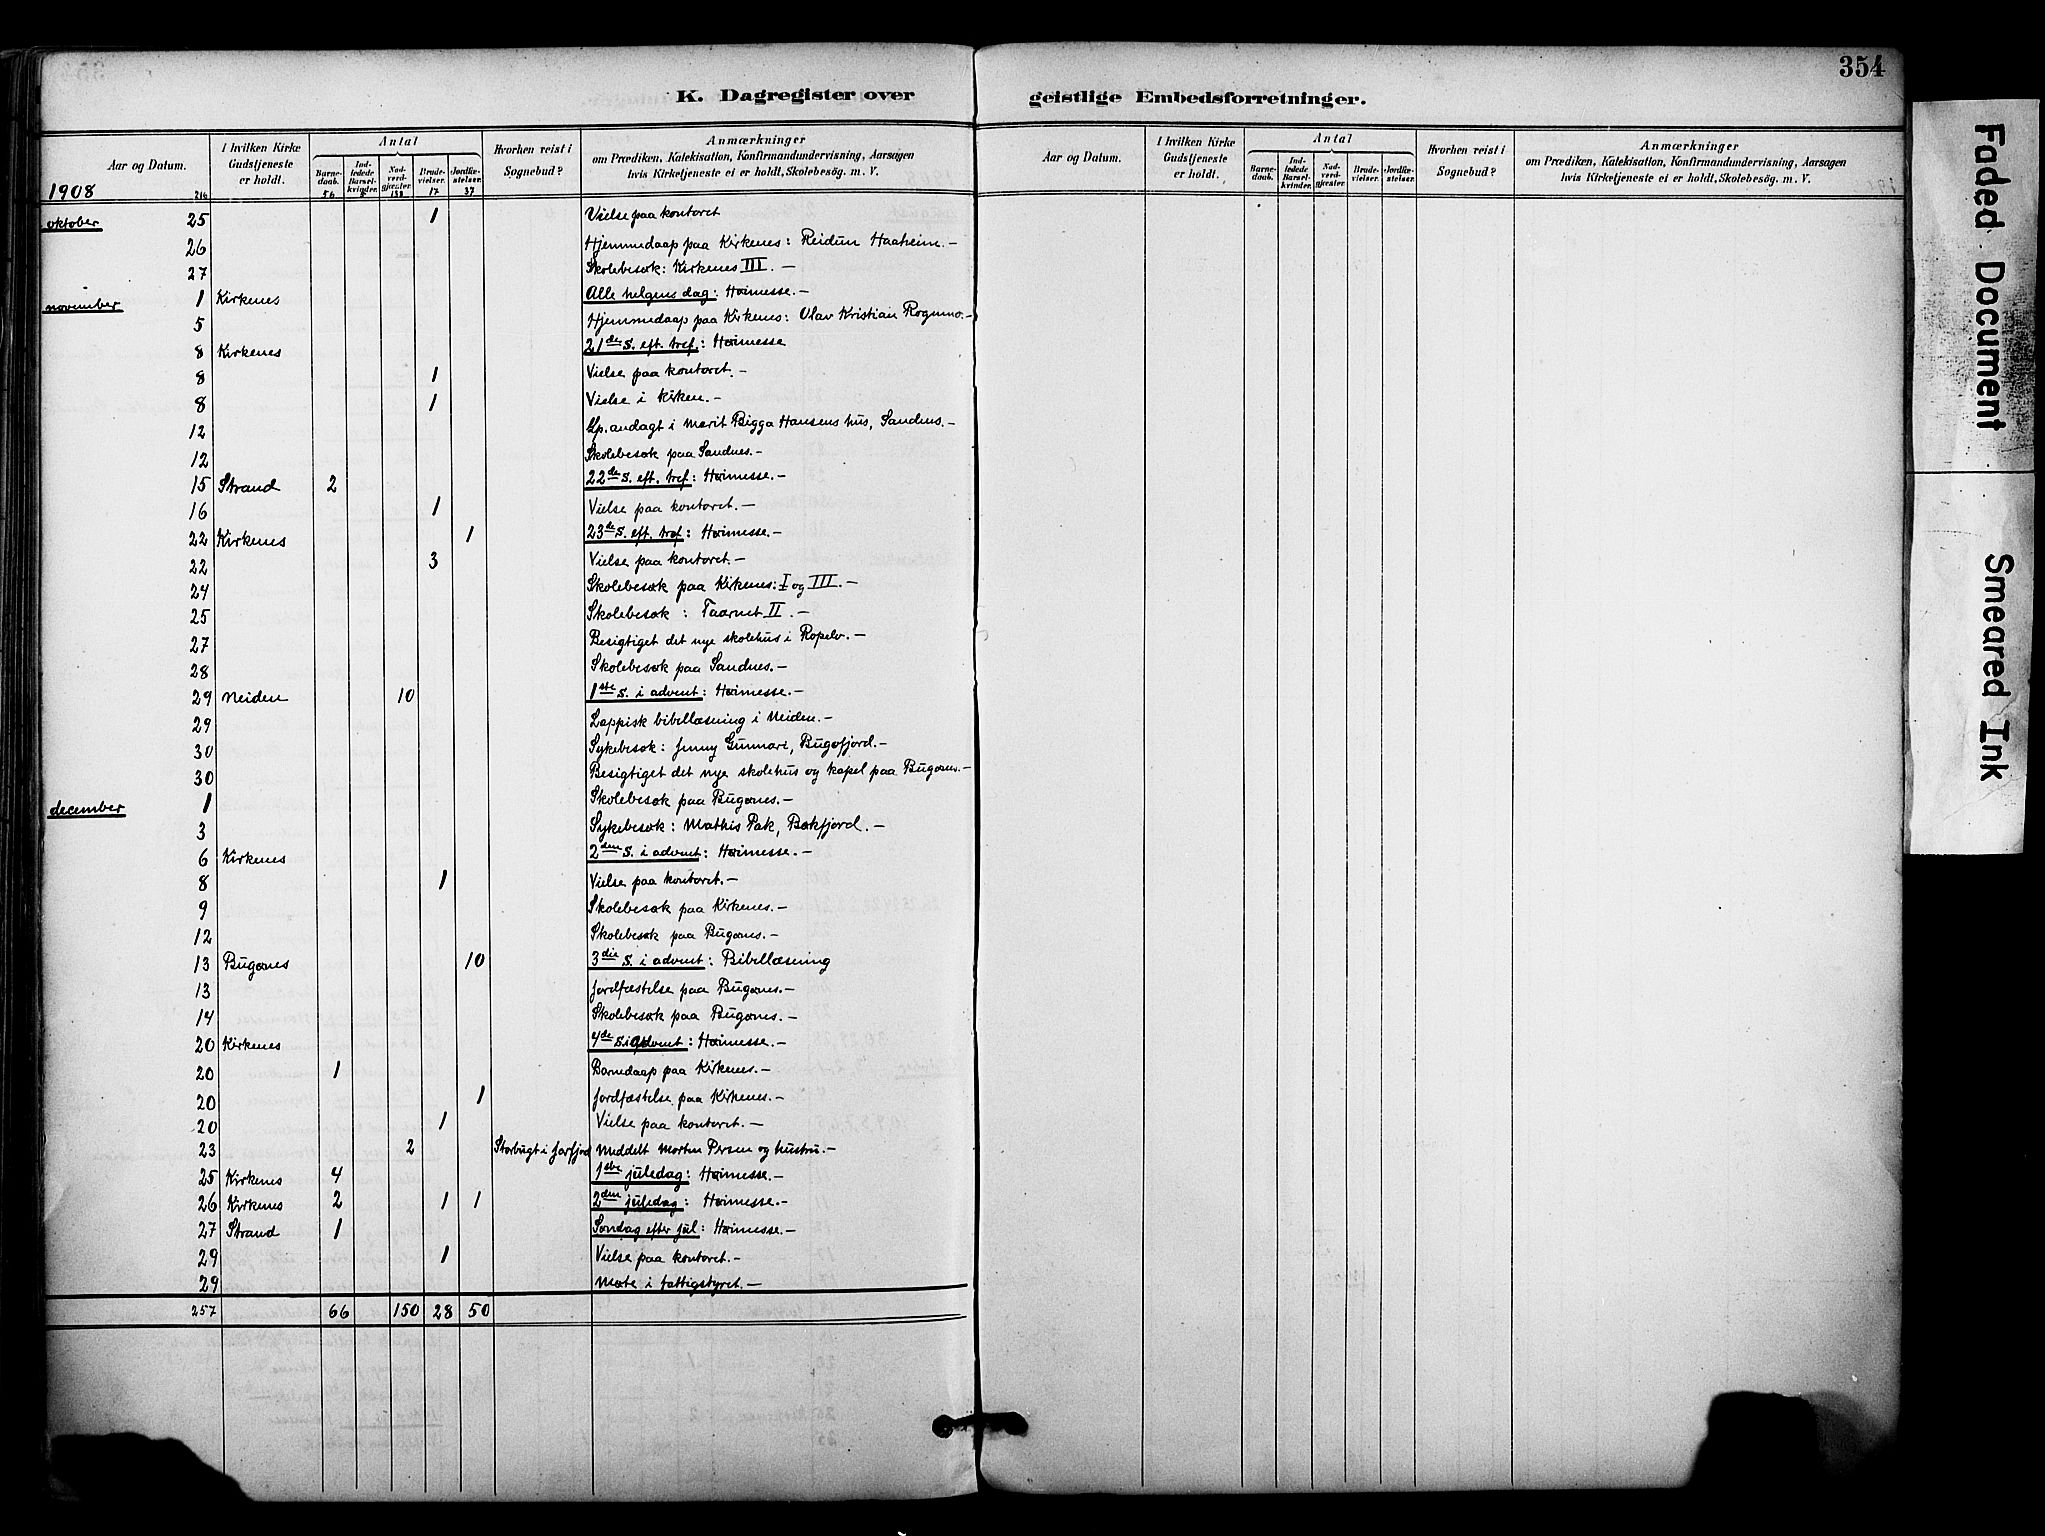 354
K. Dagregister over geistlige Embedsforretninger.
Aar og Datum. I hvilken Kirke Gudstjeneste er holdt. Antal Barnedaab. Indledede Barselkvinder. Nadverdgjæster. Brudevielser. Jordfæstelser. Hvorhen reist i Sognebud? Anmærkninger om Prædiken, Katekisation, Konfirmandundervisning, Aarsagen hvis Kirketjeneste ei er holdt, Skolebesøg. m. V.
1908 216 56 138 17 37
oktober 25 1 Vielse paa kontoret
26 Hjemmedaap paa Kirkenes: Reidun Haaheim. –
27 Skolebesøk: Kirkenes III. –
november 1 Kirkenes Alle helgens dag: Høimesse. –
5 Hjemmedaap paa Kirkenes: Olav Kristian Rognmo. –
8 Kirkenes 21de s. eft. tref.: Høimesse
8 1 Vielse paa kontoret. –
8 1 Vielse i kirken. –
12 Lp. andagt i Marit Bigga Hansens hus, Sandnes. –
12 Skolebesøk paa Sandnes. –
15 Strand 2 22de s. eft. tref: Høimesse. –
16 1 Vielse paa kontoret. –
22 Kirkenes 1 23de s. eft. tref: Høimesse. –
22 3 Vielse paa kontoret. –
24 Skolebesøk paa Kirkenes: I og III. –
25 Skolebesøk: Taarnet II. –
27 Besigtiget det nye skolehus i Ropelv. –
28 Skolebesøk paa Sandnes. –
29 Neiden 10 1ste s. i advent: Høimesse. –
29 Lappisk bibellæsning i Neiden. –
30 Sykebesøk: Jenny Gunnari, Bugøfjord. –
30 Besigtiget det nye skolehus og kapel paa Bugønes. –
december 1 Skolebesøk paa Bugønes. –
3 Sykebesøk: Mathis Pak, Bøkfjord. –
6 Kirkenes 2den s. i advent: Høimesse. –
8 1 Vielse paa kontoret. –
9 Skolebesøk paa Kirkenes. –
12 Skolebesøk paa Bugønes. –
13 Bugønes 10 3die s. i advent: Bibellæsning
13 Jordfæstelse paa Bugønes. –
14 Skolebesøk paa Bugønes. –
20 Kirkenes 4de s. i advent: Høimesse. –
20 1 Barnedaap paa Kirkenes. –
20 1 Jordfæstelse paa Kirkenes. –
20 1 Vielse paa kontoret. –
23 2 Storbugt i Jarfjord Meddelt Morten Persen og hustru. –
25 Kirkenes 4 1ste juledag: Høimesse. –
26 Kirkenes 2 1 1 2den juledag: Høimesse. –
27 Strand 1 Søndag efter jul: Høimesse. –
29 1 Vielse paa kontoret. –
29 Møte i fattigstyret. –
257 66 150 28 50
Aar og Datum. I hvilken Kirke Gudstjeneste er holdt. Antal Barnedaab. Indledede Barselkvinder. Nadverdgjæster. Brudevielser. Jordfæstelser. Hvorhen reist i Sognebud? Anmærkninger om Prædiken, Katekisation, Konfirmandundervisning, Aarsagen hvis Kirketjeneste ei er holdt, Skolebesøg. m. V.
Faded Document
Smeared Ink